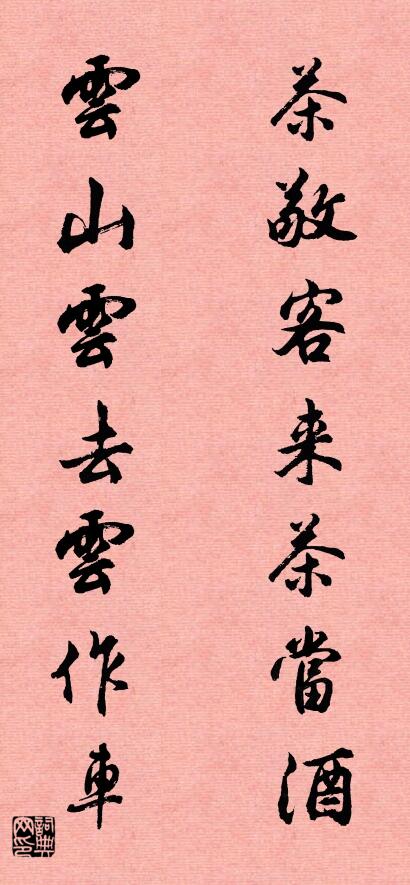 茶敬客来茶當酒
雲山雲去雲作車
詞典网印